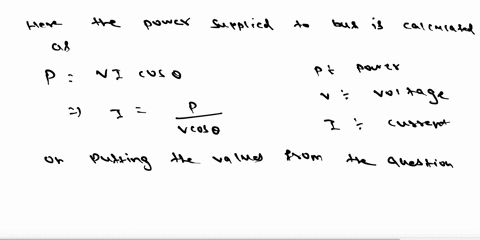 Here the power supplied to bus is calculated
as
P = VI cosθ
P÷ power
V÷ voltage
=> I = P / Vcosθ
I ÷ current
on putting the values from the question